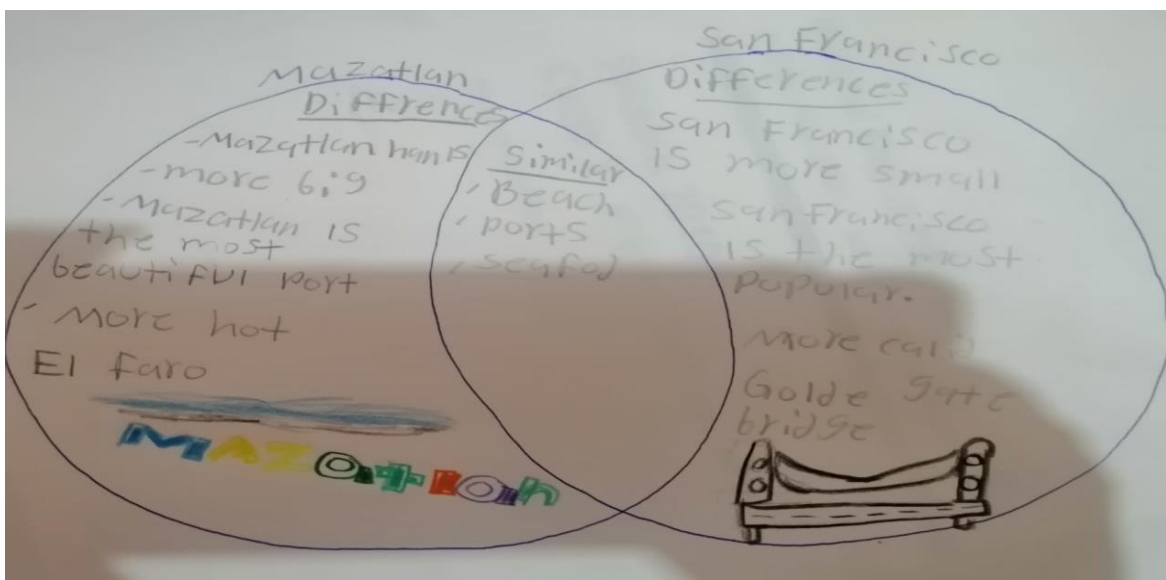 Mazatlan
Diffrences
-Mazatlan han is
-more big
-Mazatlan is
the most
beautiful port
- More hot
El faro
MAZatlan
Similar
, Beach
, ports
, seafod
San Francisco
Differences
San Francisco
is more small
San Francisco
is the most
popular.
more
Golde gate
bridge